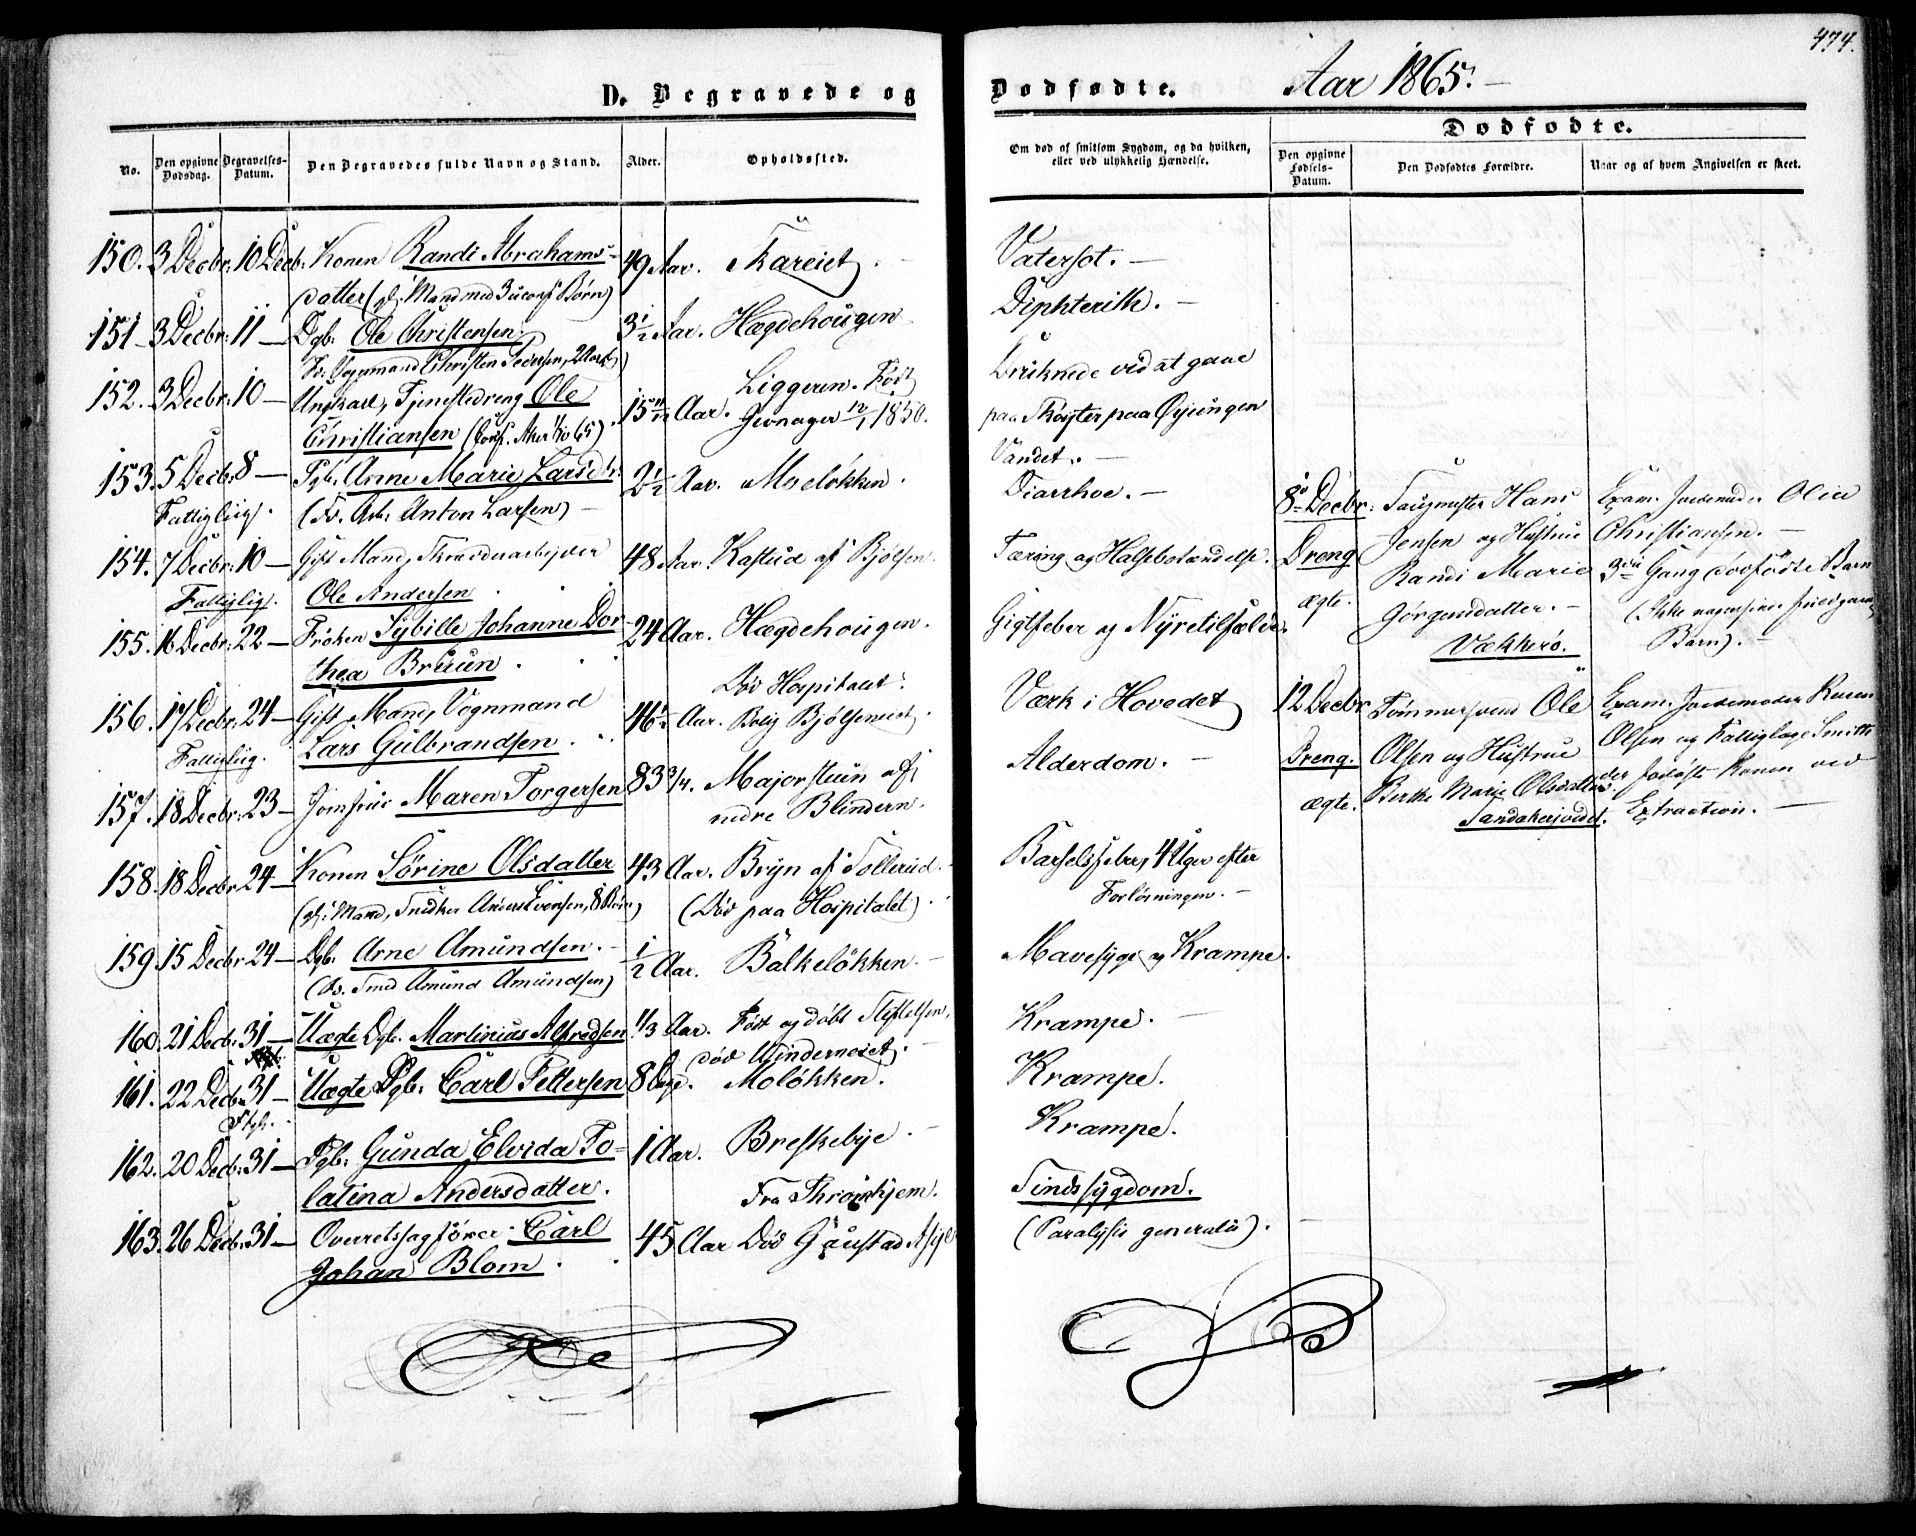 474.
D. Begravede og
Dødfødte.
Aar 1865.
No.
Den opgivne Dødsdag.
Begravelses-Datum.
Den Begravedes fulde Navn og Stand.
Alder.
Opholdssted.
Om død af smitsom Sygdom, og da hvilken, eller ved ulykkelig Hændelse.
Dødfødte.
Den opgivne Fødsels-Datum.
Den Dødfødtes Forældre.
Naar og af hvem Angivelsen er skeet.
150. 3 Decbr: 10 Decb: Konen Randi Abrahams-
49 Aar. Skareiet. Vatersot.
datter (gl: Mand med 3 uconf Børn)
151 3 Decbr: 11 Dgb. Ole Christensen
3 1/2 Aar. Hægdehougen Diphterith.
Fr: Vognmand Christen Pedersen,
152. 3 Decbr: 10 Ungkarl, Tjenestedreng Ole
Christiansen (Conf. Aker 1/10 65)
15 11/12 Aar. Liggeren. Født
Gevnager 12/1 1850.
Druknede ved at gaae
paa Skøyter paa Øyungen
Vandet.
153. 5 Decbr: 8 Pgb. Anne Marie Larsdtr:
Fattiglig. (Fr. Arb: Anton Larsen)
2 1/2 Aar. Moeløkken. Diarrhoe.
154. 7 Decbr: 10 Gift Mand, Skrædderarbejder
Fattiglig. Ole Andersen
48 Aar. Kastud af Bjølsen.
Tæring og Halsbetændelse.
155. 16 Decbr: 22 Frøken Sybille Johanne Dor-
thea Bruun
24 Aar. Hægdehougen.
Gigtfeber og Nyretilfælde.
156. 17 Decbr: 24 Gift Mand, Vognmand
Fattiglig. Lars Gulbrandsen
46 1/2 Aar. Død Hospitalet.
Bolig Bjølseneiet.
Værk i Hovedet
157. 18 Decbr: 23 Jomfrue Maren Torgersen
83 3/4. Majorstuen af
nedre Blindern.
Alderdom.
158. 18 Decbr 24 Konen Sørine Olsdatter
(gl: Mand, Snedker Anders Evensen, 8 Børn)
43 Aar. Bryn af Tollerud.
(Død paa Hospitalet).
Barselsfeber, 4 Uger efter
Forløsningen.
159 15 Decbr 24 Dgb: Arne Amundsen.
(Fr. Smed Amund Amundsen)
1/2 Aar. Balkeløkken.
Mavesyge og Krampe.
160. 21 Decb: 31 Uægte Dgb. Martinius Alfredsen
1/3 Aar. Født og døbt Stiftelsen,
død Underneiet.
Krampe.
161. 22 Decbr 31 Uægte Pgb: Carl Pettersen
8 Dage. Moløkken.
Krampe.
162. 20 Decb: 31 Pgb: Gunda Elvida Po-
latina Andersdatter.
1 Aar. Breskebye.
Krampe.
163. 26 Decb: 31 Overretssagfører Carl
Johan Blom
45 Aar Fra Throndhjem.
Død Gaustad Asyl
Sindssygdom.
(Paralysis generalis).
8de Decbr: Dreng ægte.
Taugmester Hans
Jensen og Hustrue
Randi Marie
Jørgensdatter.
Vækkerø.
Exam. Jordemoder Olea
Christiansen.
3die Gang dødfødte Barn
(Ikke nogensinde
Barn).
12 Decbr Dreng. ægte.
Tømmersvend Ole
Olsen og Hustrue
Berthe Marie Olsdatter.
Sandakerjordet.
Exam. Jordemoder Karen
Olsen og Fattiglæge Smith
der forløste Konen ved
Extraction.